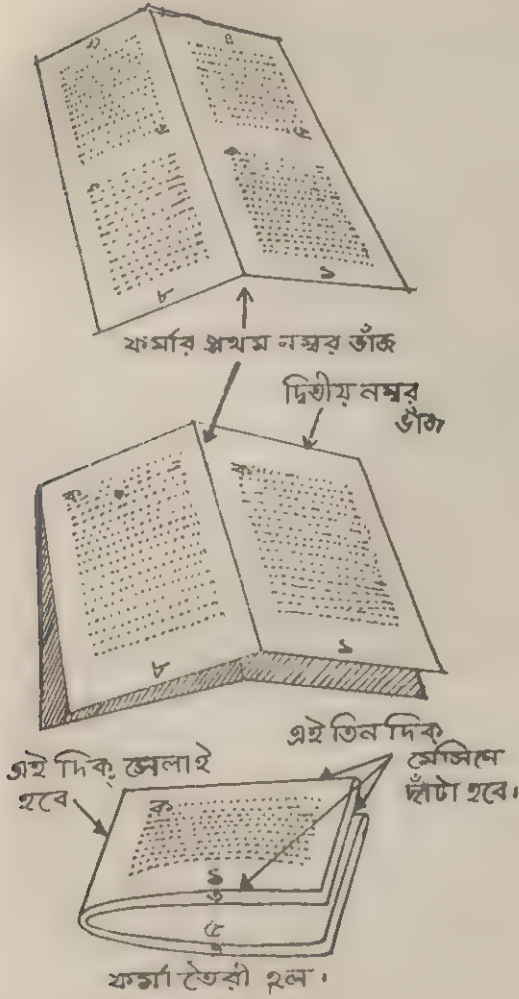 ৮
১
ফর্মার প্রথম নম্বর ভাঁজ
দ্বিতীয় নম্বর
ভাঁজ
ক
ক
৮
১
এই দিক্ সেলাই
হবে
এই তিন দিক্
মেসিনে
ছাঁটা হবে।
ক
১
৩
৫
৭
ফর্মা তৈরী হল।